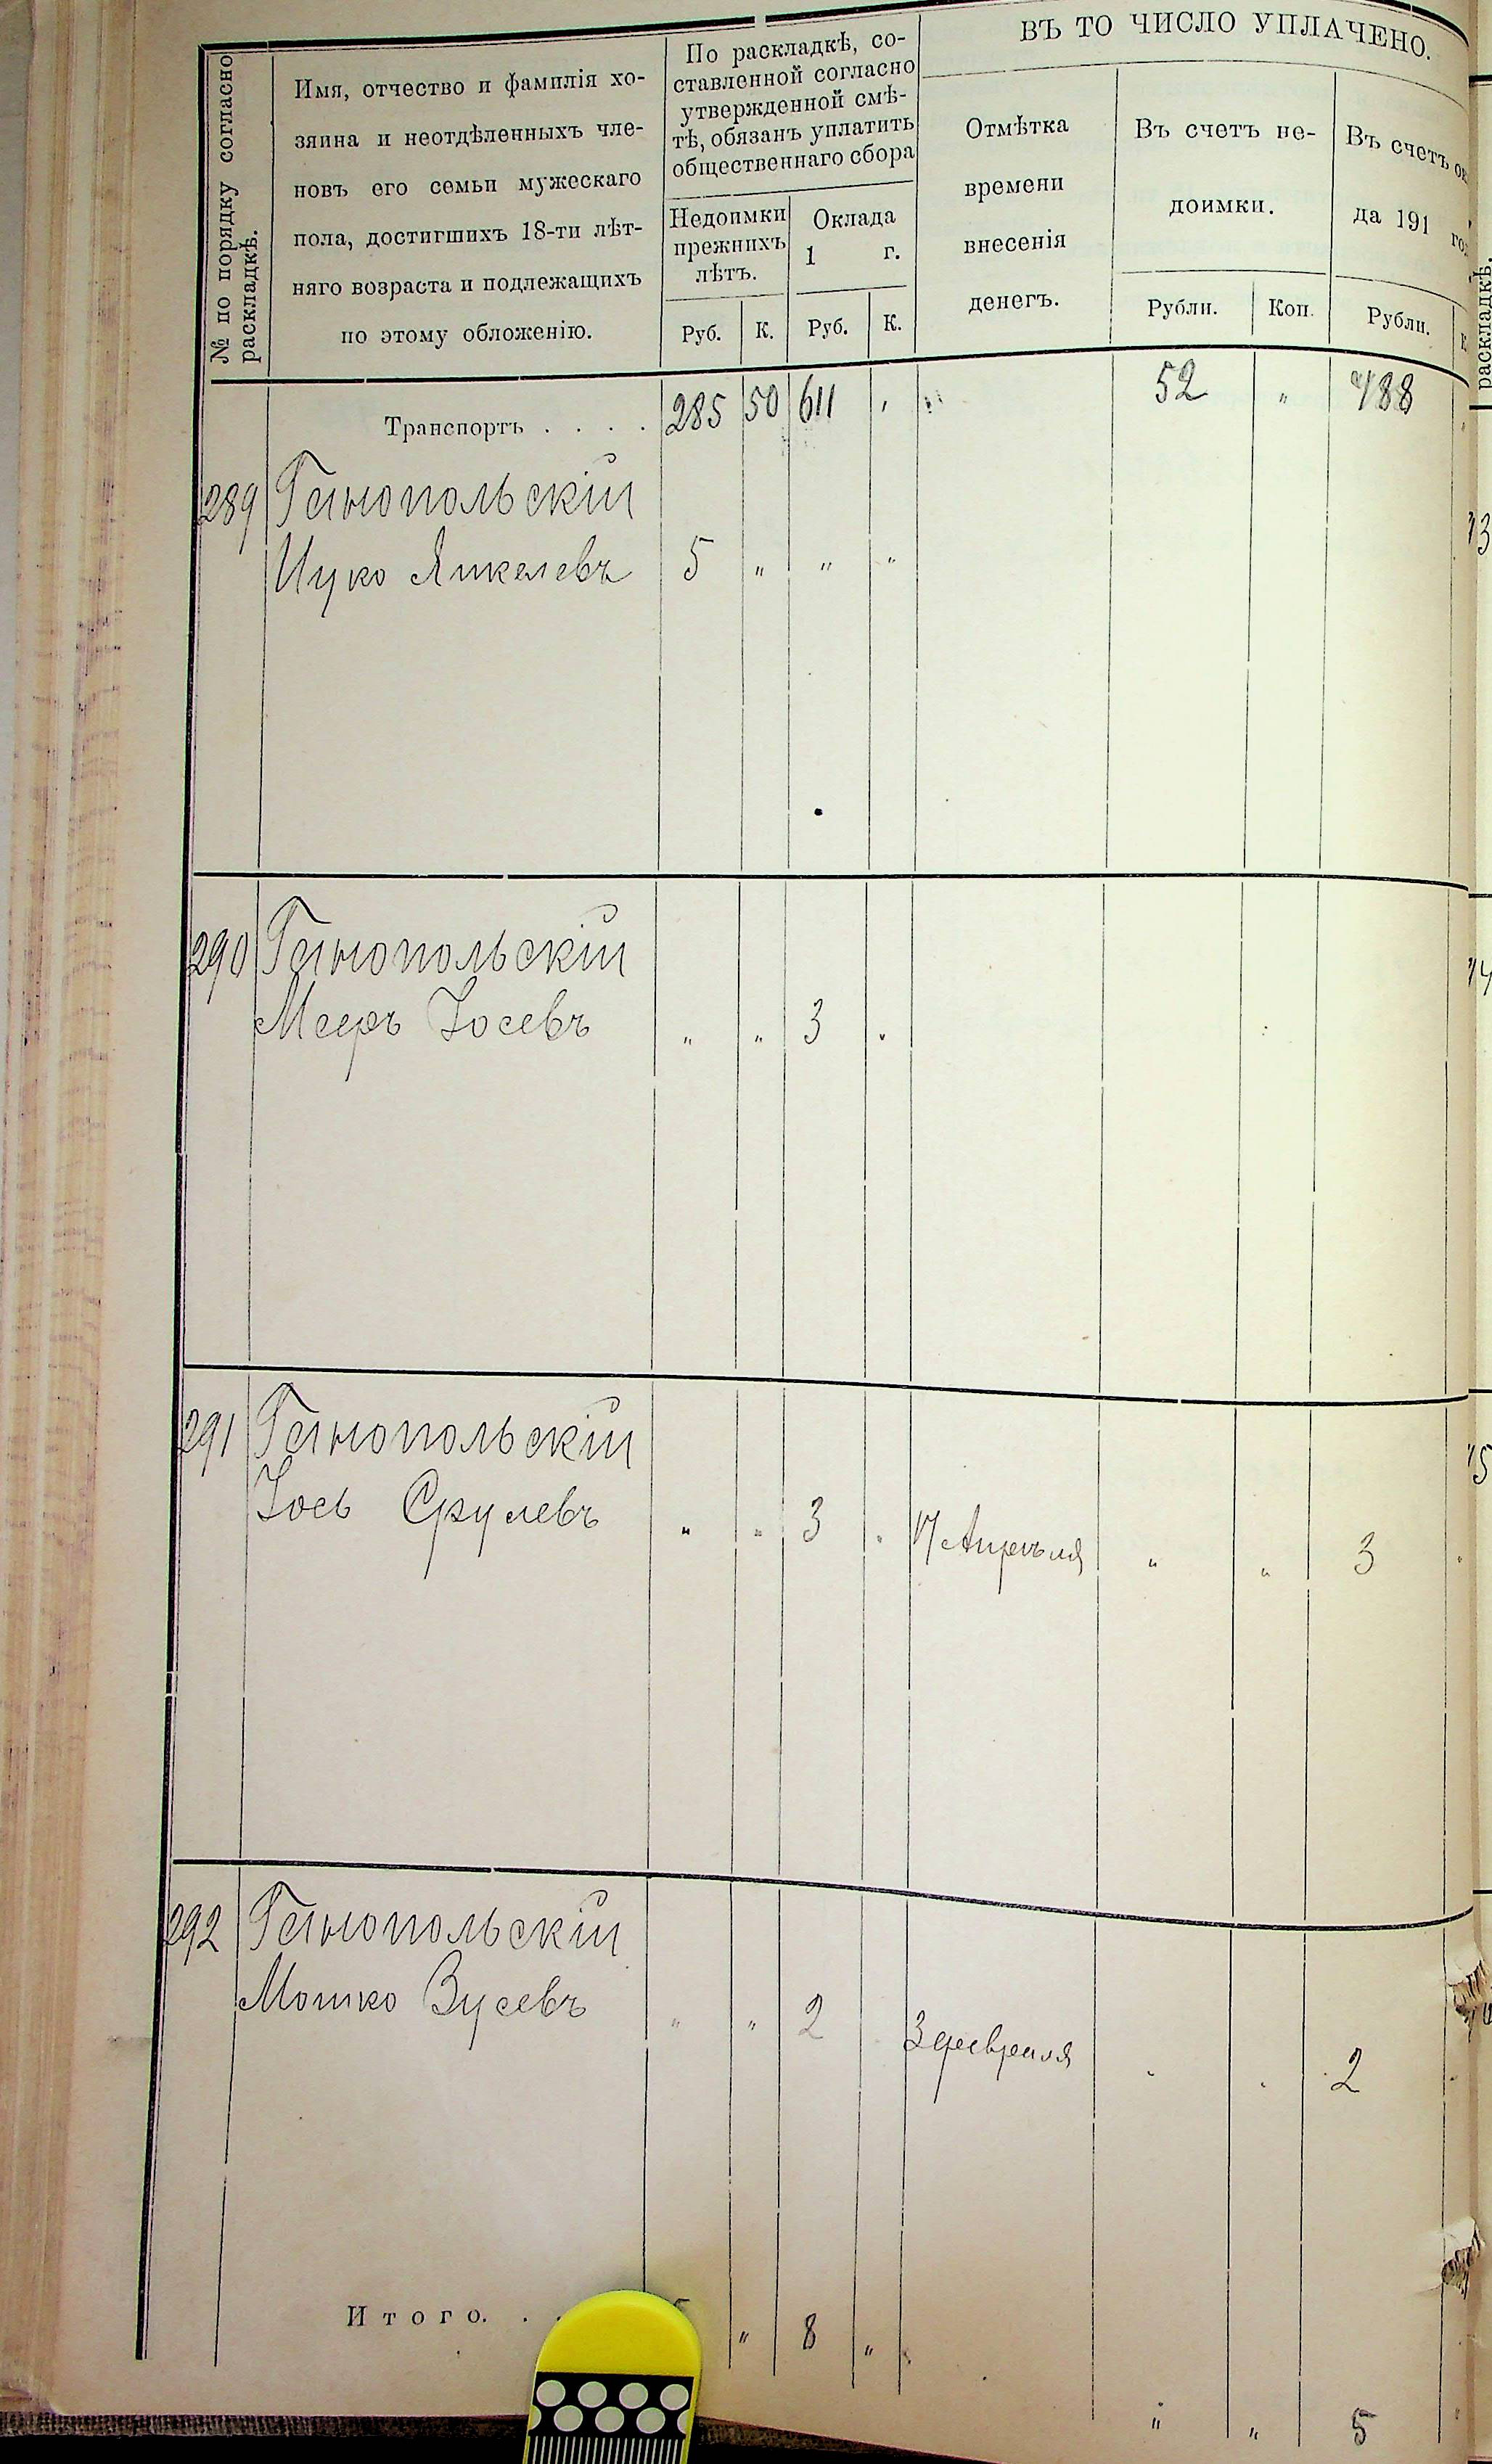 ВЪ ТО ЧИСЛО УПЛАЧЕНО.
№ по порядку согласно
раскладкѣ.
Имя, отчество и фамилія хо-
зяина и неотдѣленныхъ чле-
новъ его семьи мужескаго
пола, достигшихъ 18-ти лѣт-
няго возраста и подлежащихъ
по этому обложенію.
По раскладкѣ, со-
ставленной согласно
утвержденной смѣ-
тѣ, обязанъ уплатить
общественнаго сбора
Недоимки
прежнихъ
лѣтъ.
Оклада
1 г.
Руб. К. Руб. К.
Отмѣтка
времени
внесенія
денегъ.
Въ счетъ не-
доимки.
Рубли. Коп.
Въ счетъ
да 191
Рубли.
раскладкѣ.
Транспортъ . . . . 285 50 611 " 52 " 488
289 Ганопольскій
Ицко Янкелевъ 5 " " "
290 Ганопольскій
Мееръ Іосевъ " " 3 "
291 Ганопольскій
Іось Срулевъ " " 3 " 17 Апрѣля " " 3 "
292 Ганопольскій
Мошко Зусевъ " " 2 3 февраля " " 2 "
Итого. . " 8 "
" " 5